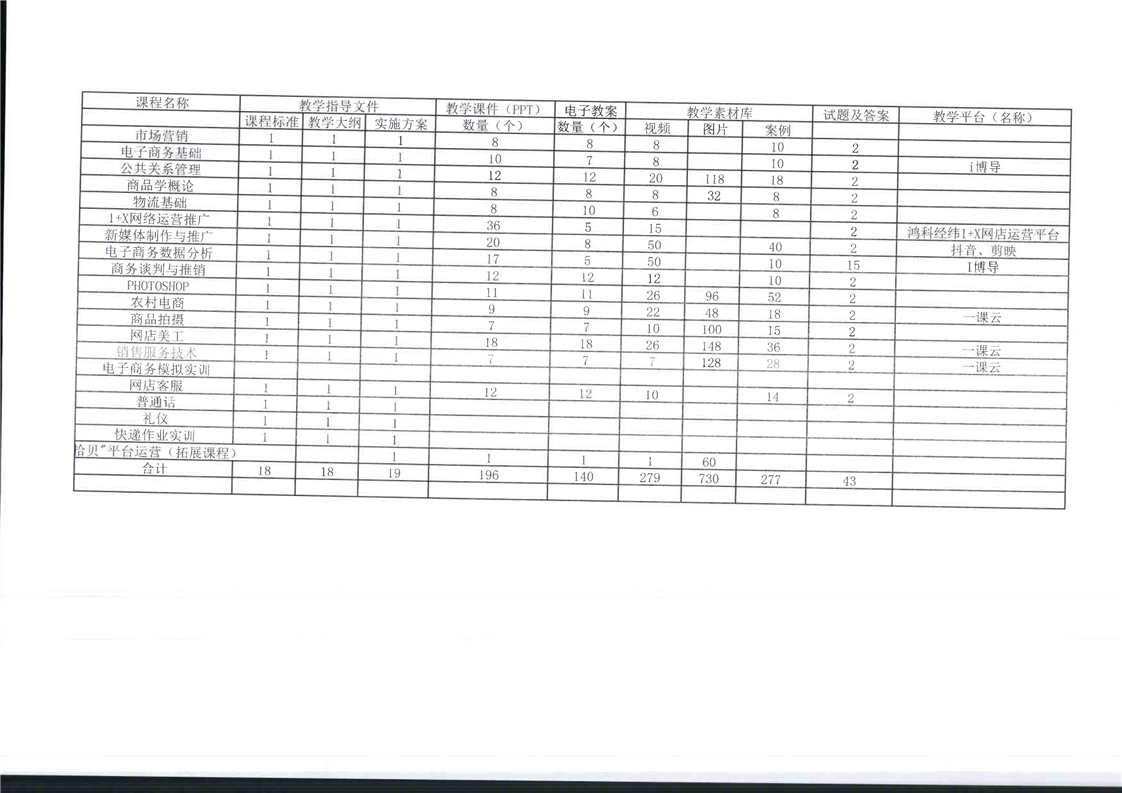 课程名称 教学指导文件 教学课件（PPT） 电子教案 教学素材库 试题及答案 教学平台（名称）
课程标准 教学大纲 实施方案 数量（个） 数量（个） 视频 图片 案例
市场营销 1 1 1 8 8 8 10 2
电子商务基础 1 1 1 10 7 8 10 2 i博导
公共关系管理 1 1 1 12 12 20 118 18 2
商品学概论 1 1 1 8 8 8 32 8 2
物流基础 1 1 1 8 10 6 8 2
1+X网络运营推广 1 1 1 36 5 15 2 鸿科经纬1+X网店运营平台
新媒体制作与推广 1 1 1 20 8 50 40 2 抖音、剪映
电子商务数据分析 1 1 1 17 5 50 10 15 I博导
商务谈判与推销 1 1 1 12 12 12 10 2
PHOTOSHOP 1 1 1 11 11 26 96 52 2
农村电商 1 1 1 9 9 22 48 18 2 一课云
商品拍摄 1 1 1 7 7 10 100 15 2
网店美工 1 1 1 18 18 26 148 36 2 一课云
销售服务技术 1 1 1 7 7 7 128 28 2 一课云
电子商务模拟实训
网店客服 1 1 1 12 12 10 14 2
普通话 1 1 1
礼仪 1 1 1
快递作业实训 1 1 1
贝"平台运营（拓展课程） 1 1 1 1 60
合计 18 18 19 196 140 279 730 277 43